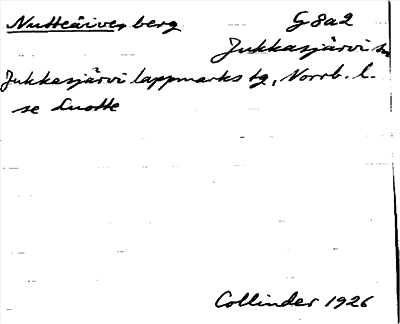 Nutteåive, berg G 8a2
Jukkasjärvi sn
Jukkasjärvi lappmarks tg, Norrb. l.
se Luotte
Collinder 1926